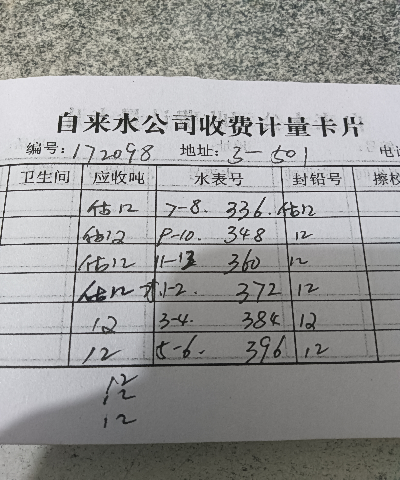 自来水公司收费计量卡片
编号:172098 地址:3-501 电话
卫生间 应收吨 水表号 封铅号 擦校
估12 7-8. 336. 估12
估12 9-10. 348 12
估12 11-12 360 12
估12 1-2. 372 12
12 3-4. 384 12
12 5-6. 396 12
12
12
12